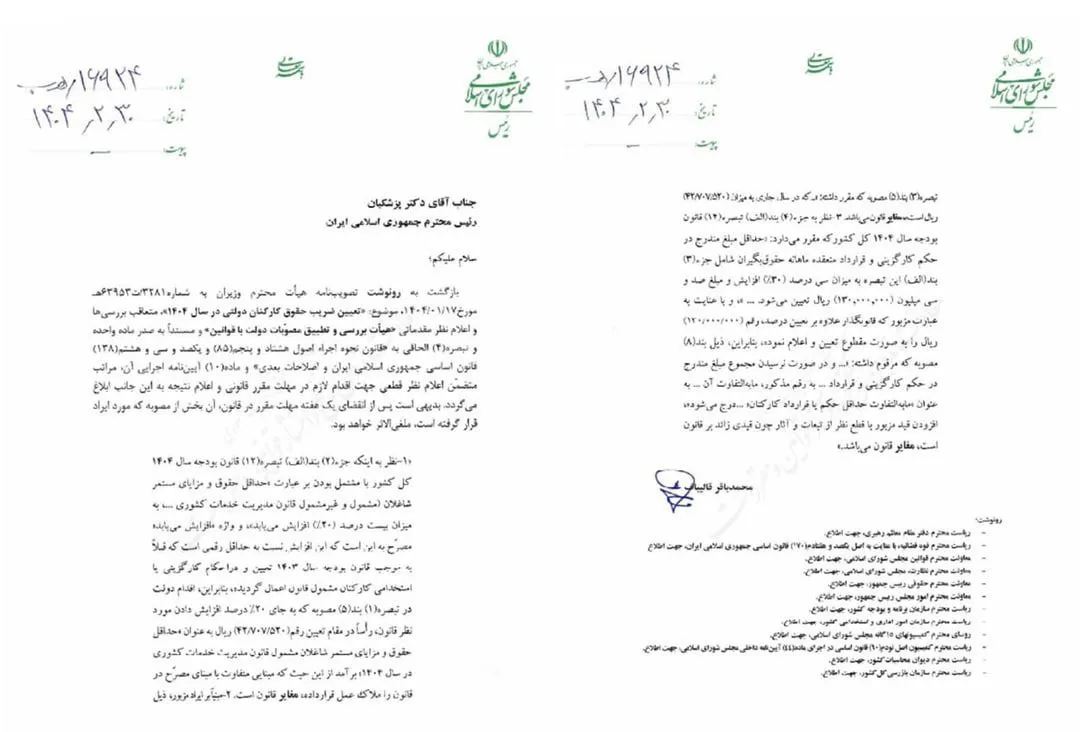 جمهوری اسلامی ایران
مجلس شورای اسلامی
رئیس
باسمه تعالی
شماره: ۱۶۹۲۴/هـ ب
تاریخ: ۱۴۰۴/۲/۳۰
پیوست: —
جناب آقای دکتر پزشکیان
رئیس محترم جمهوری اسلامی ایران
سلام علیکم؛
بازگشت به رونوشت تصویب‌نامه هیأت محترم وزیران به شماره ۳۲۸۱/ت۶۳۹۵۳هـ
مورخ ۱۴۰۴/۰۱/۱۷، موضوع: «تعیین ضریب حقوق کارکنان دولتی در سال ۱۴۰۴»، متعاقب بررسی‌ها
و اعلام نظر مقدماتی «هیأت بررسی و تطبیق مصوّبات دولت با قوانین» و مستنداً به صدر ماده واحده
و تبصره(۴) الحاقی به «قانون نحوه اجراء اصول هشتاد و پنجم(۸۵) و یکصد و سی و هشتم(۱۳۸)
قانون اساسی جمهوری اسلامی ایران و اصلاحات بعدی» و ماده(۱۰) آیین‌نامه اجرایی آن، مراتب
متضمّن اعلام نظر قطعی جهت اقدام لازم در مهلت مقرر قانونی و اعلام نتیجه به این جانب ابلاغ
می‌گردد. بدیهی است پس از انقضای یک هفته مهلت مقرر در قانون، آن بخش از مصوبه که مورد ایراد
قرار گرفته است، ملغی‌الاثر خواهد بود.
«۱-نظر به اینکه جزء(۲) بند(الف) تبصره(۱۲) قانون بودجه سال ۱۴۰۴
کل کشور با مشتمل بودن بر عبارت «حداقل حقوق و مزایای مستمر
شاغلان (مشمول و غیرمشمول قانون مدیریت خدمات کشوری ...، به
میزان بیست درصد (۲۰٪) افزایش می‌یابد»، و واژه «افزایش می‌یابد»
مصرّح به این است که این افزایش نسبت به حداقل رقمی است که قبلاً
به موجب قانون بودجه سال ۱۴۰۳ تعیین و در احکام کارگزینی یا
استخدامی کارکنان مشمول قانون اعمال گردیده، بنابراین، اقدام دولت
در تبصره(۱) بند(۵) مصوبه که به جای ۲۰٪ درصد افزایش دادن مورد
نظر قانون، رأساً در مقام تعیین رقم(۴۲/۷۰۷/۵۲۰) ریال به عنوان «حداقل
حقوق و مزایای مستمر شاغلان مشمول قانون مدیریت خدمات کشوری
در سال ۱۴۰۴» برآمد از این حیث که مبنایی متفاوت با مبنای مصرّح در
قانون را ملاک عمل قرارداده، مغایر قانون است. ۲-مبنیاً بر ایراد مزبور، ذیل
جمهوری اسلامی ایران
مجلس شورای اسلامی
رئیس
باسمه تعالی
شماره: ۱۶۹۲۴/هـ ب
تاریخ: ۱۴۰۴/۲/۳۰
پیوست: —
تبصره(۳) بند(۵) مصوبه که مقرر داشته: «...که در سال جاری به میزان (۴۲/۷۰۷/۵۲۰)
ریال است»، مغایر قانون می‌باشد. ۳-نظر به جزء(۴) بند(الف) تبصره(۱۲) قانون
بودجه سال ۱۴۰۴ کل کشور که مقرر می‌دارد: «حداقل مبلغ مندرج در
حکم کارگزینی و قرارداد منعقده ماهانه حقوق‌بگیران شامل جزء(۳)
بند(الف) این تبصره به میزان سی درصد (۳۰٪) افزایش و مبلغ صد و
سی میلیون (۱۳۰,۰۰۰,۰۰۰) ریال تعیین می‌شود. ... »، و با عنایت به
عبارت مزبور که قانونگذار علاوه بر تعیین درصد، رقم (۱۲۰/۰۰۰/۰۰۰)
ریال را به صورت مقطوع تعیین و اعلام نموده، بنابراین، ذیل بند(۸)
مصوبه که مرقوم داشته: «... و در صورت نرسیدن مجموع مبلغ مندرج
در حکم کارگزینی و قرارداد ... به رقم مذکور، مابه‌التفاوت آن ... به
عنوان «مابه‌التفاوت حداقل حکم یا قرارداد کارکنان» ...درج می‌شود»،
افزودن قید مزبور با قطع نظر از تبعات و آثار چون قیدی زائد بر قانون
است، مغایر قانون می‌باشد.»
محمدباقر قالیباف
رونوشت:
- ریاست محترم دفتر مقام معظم رهبری، جهت اطلاع.
- ریاست محترم قوه قضائیه، با عنایت به اصل یکصد و هفتادم(۱۷۰) قانون اساسی جمهوری اسلامی ایران، جهت اطلاع
- معاونت محترم قوانین مجلس شورای اسلامی، جهت اطلاع.
- معاونت محترم نظارت، مجلس شورای اسلامی، جهت اطلاع.
- معاونت محترم حقوقی رییس جمهور، جهت اطلاع.
- معاونت محترم امور مجلس رییس جمهور، جهت اطلاع.
- ریاست محترم سازمان برنامه و بودجه کشور، جهت اطلاع.
- ریاست محترم سازمان امور اداری و استخدامی کشور، جهت اطلاع.
- روسای محترم کمیسیونهای ۱۵گانه مجلس شورای اسلامی، جهت اطلاع.
- ریاست محترم کمیسیون اصل نودم(۹۰) قانون اساسی در اجرای ماده(۴۴) آیین‌نامه داخلی مجلس شورای اسلامی، جهت اطلاع.
- ریاست محترم دیوان محاسبات کشور، جهت اطلاع.
- ریاست محترم سازمان بازرسی کل کشور، جهت اطلاع.